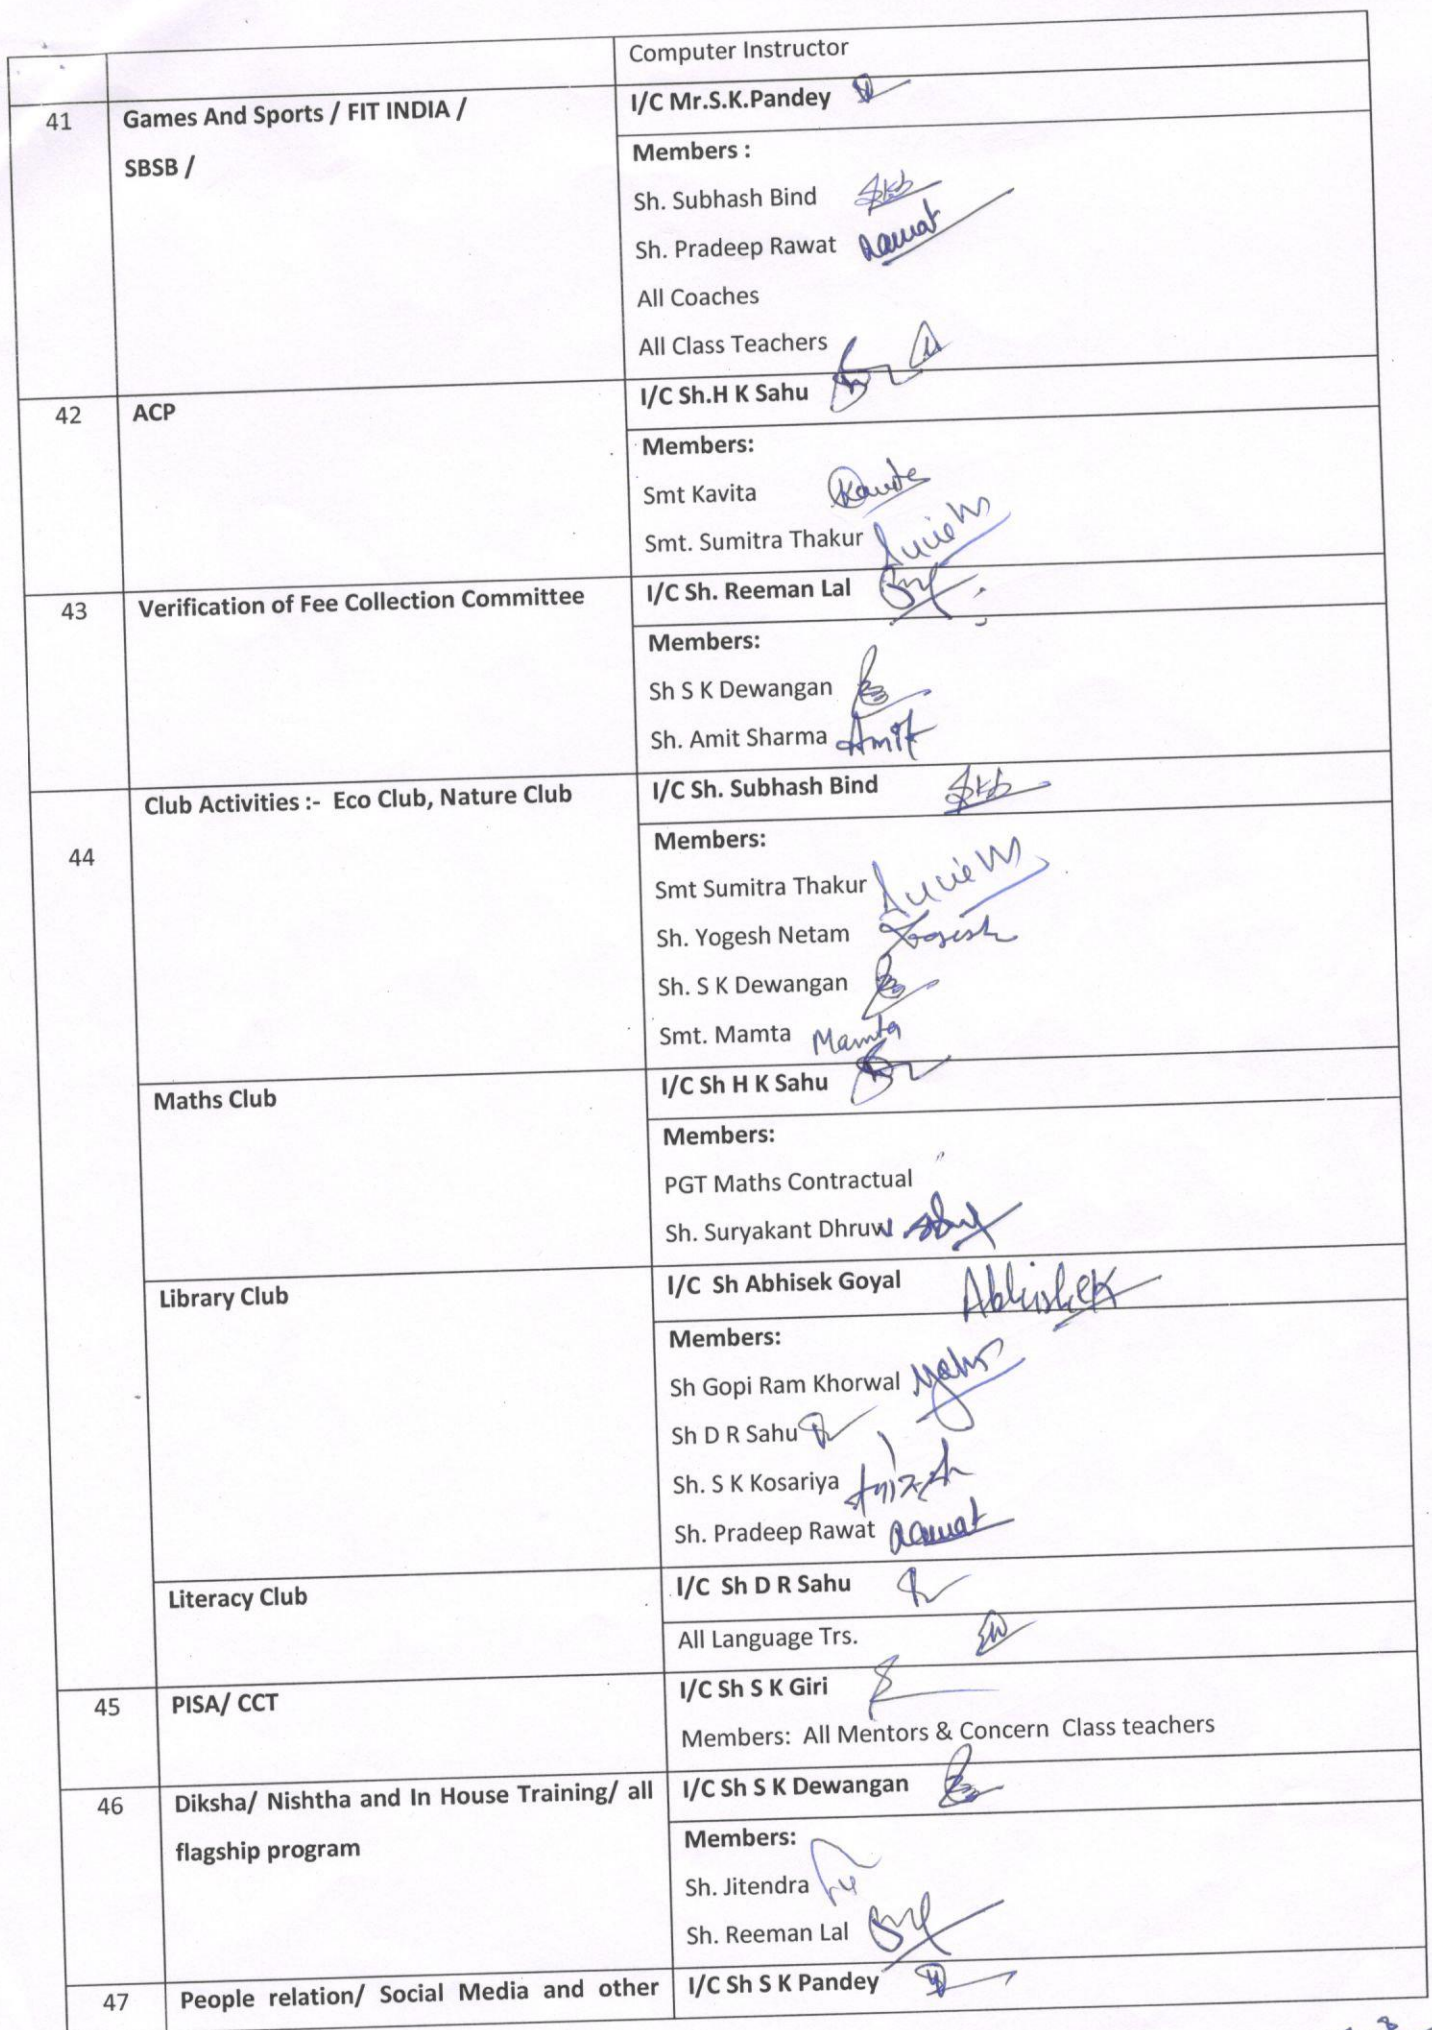 Computer Instructor
41 Games And Sports / FIT INDIA / I/C Mr.S.K.Pandey
SBSB /
Members :
Sh. Subhash Bind Skb
Sh. Pradeep Rawat Rawat
All Coaches
All Class Teachers
42 ACP I/C Sh.H K Sahu
Members:
Smt Kavita Kavita
Smt. Sumitra Thakur
43 Verification of Fee Collection Committee I/C Sh. Reeman Lal
Members:
Sh S K Dewangan
Sh. Amit Sharma Amit
Club Activities :- Eco Club, Nature Club I/C Sh. Subhash Bind Skb
44
Members:
Smt Sumitra Thakur
Sh. Yogesh Netam Yogesh
Sh. S K Dewangan
Smt. Mamta Mamta
Maths Club I/C Sh H K Sahu
Members:
PGT Maths Contractual
Sh. Suryakant Dhruw
Library Club I/C Sh Abhisek Goyal Abhishek
Members:
Sh Gopi Ram Khorwal
Sh D R Sahu
Sh. S K Kosariya
Sh. Pradeep Rawat Rawat
Literacy Club I/C Sh D R Sahu
All Language Trs.
45 PISA/ CCT I/C Sh S K Giri
Members: All Mentors & Concern Class teachers
46 Diksha/ Nishtha and In House Training/ all I/C Sh S K Dewangan
flagship program
Members:
Sh. Jitendra
Sh. Reeman Lal
47 People relation/ Social Media and other I/C Sh S K Pandey